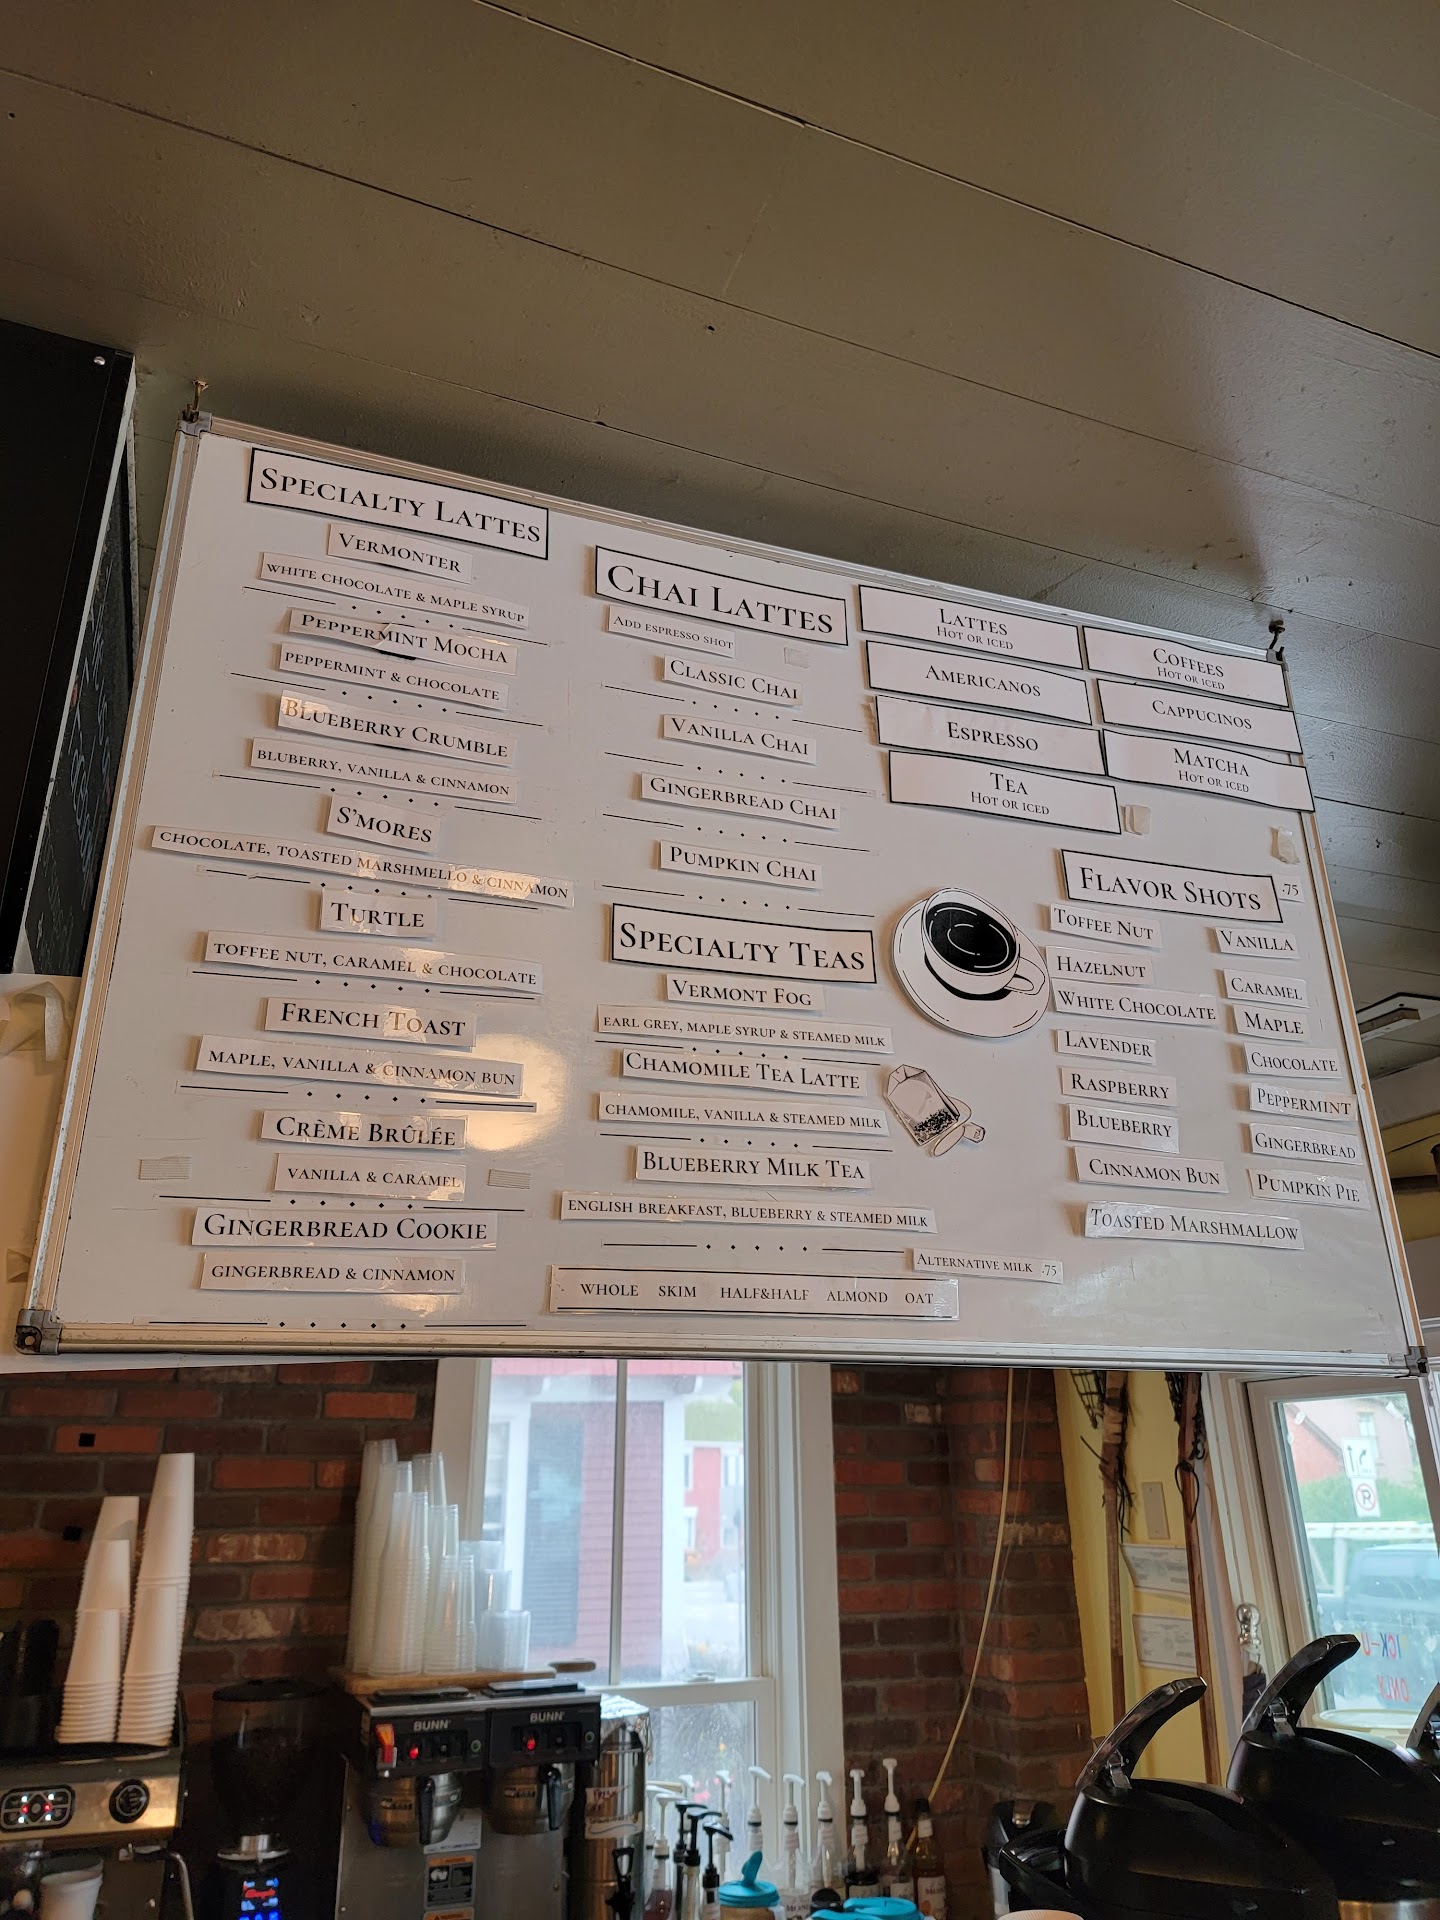 SPECIALTY LATTES
VERMONTER
WHITE CHOCOLATE & MAPLE SYRUP
PEPPERMINT MOCHA
PEPPERMINT & CHOCOLATE
BLUEBERRY CRUMBLE
BLUBERRY, VANILLA & CINNAMON
S'MORES
CHOCOLATE, TOASTED MARSHMELLO & CINNAMON
TURTLE
TOFFEE NUT, CARAMEL & CHOCOLATE
FRENCH TOAST
MAPLE, VANILLA & CINNAMON BUN
CRÈME BRÛLÉE
VANILLA & CARAMEL
GINGERBREAD COOKIE
GINGERBREAD & CINNAMON
CHAI LATTES
ADD ESPRESSO SHOT
CLASSIC CHAI
VANILLA CHAI
GINGERBREAD CHAI
PUMPKIN CHAI
SPECIALTY TEAS
VERMONT FOG
EARL GREY, MAPLE SYRUP & STEAMED MILK
CHAMOMILE TEA LATTE
CHAMOMILE, VANILLA & STEAMED MILK
BLUEBERRY MILK TEA
ENGLISH BREAKFAST, BLUEBERRY & STEAMED MILK
ALTERNATIVE MILK .75
WHOLE SKIM HALF&HALF ALMOND OAT
LATTES
HOT OR ICED
AMERICANOS
ESPRESSO
TEA
HOT OR ICED
COFFEES
HOT OR ICED
CAPPUCINOS
MATCHA
HOT OR ICED
FLAVOR SHOTS .75
TOFFEE NUT
HAZELNUT
WHITE CHOCOLATE
LAVENDER
RASPBERRY
BLUEBERRY
CINNAMON BUN
TOASTED MARSHMALLOW
VANILLA
CARAMEL
MAPLE
CHOCOLATE
PEPPERMINT
GINGERBREAD
PUMPKIN PIE
BUNN
BUNN
ICK-U
ONLY